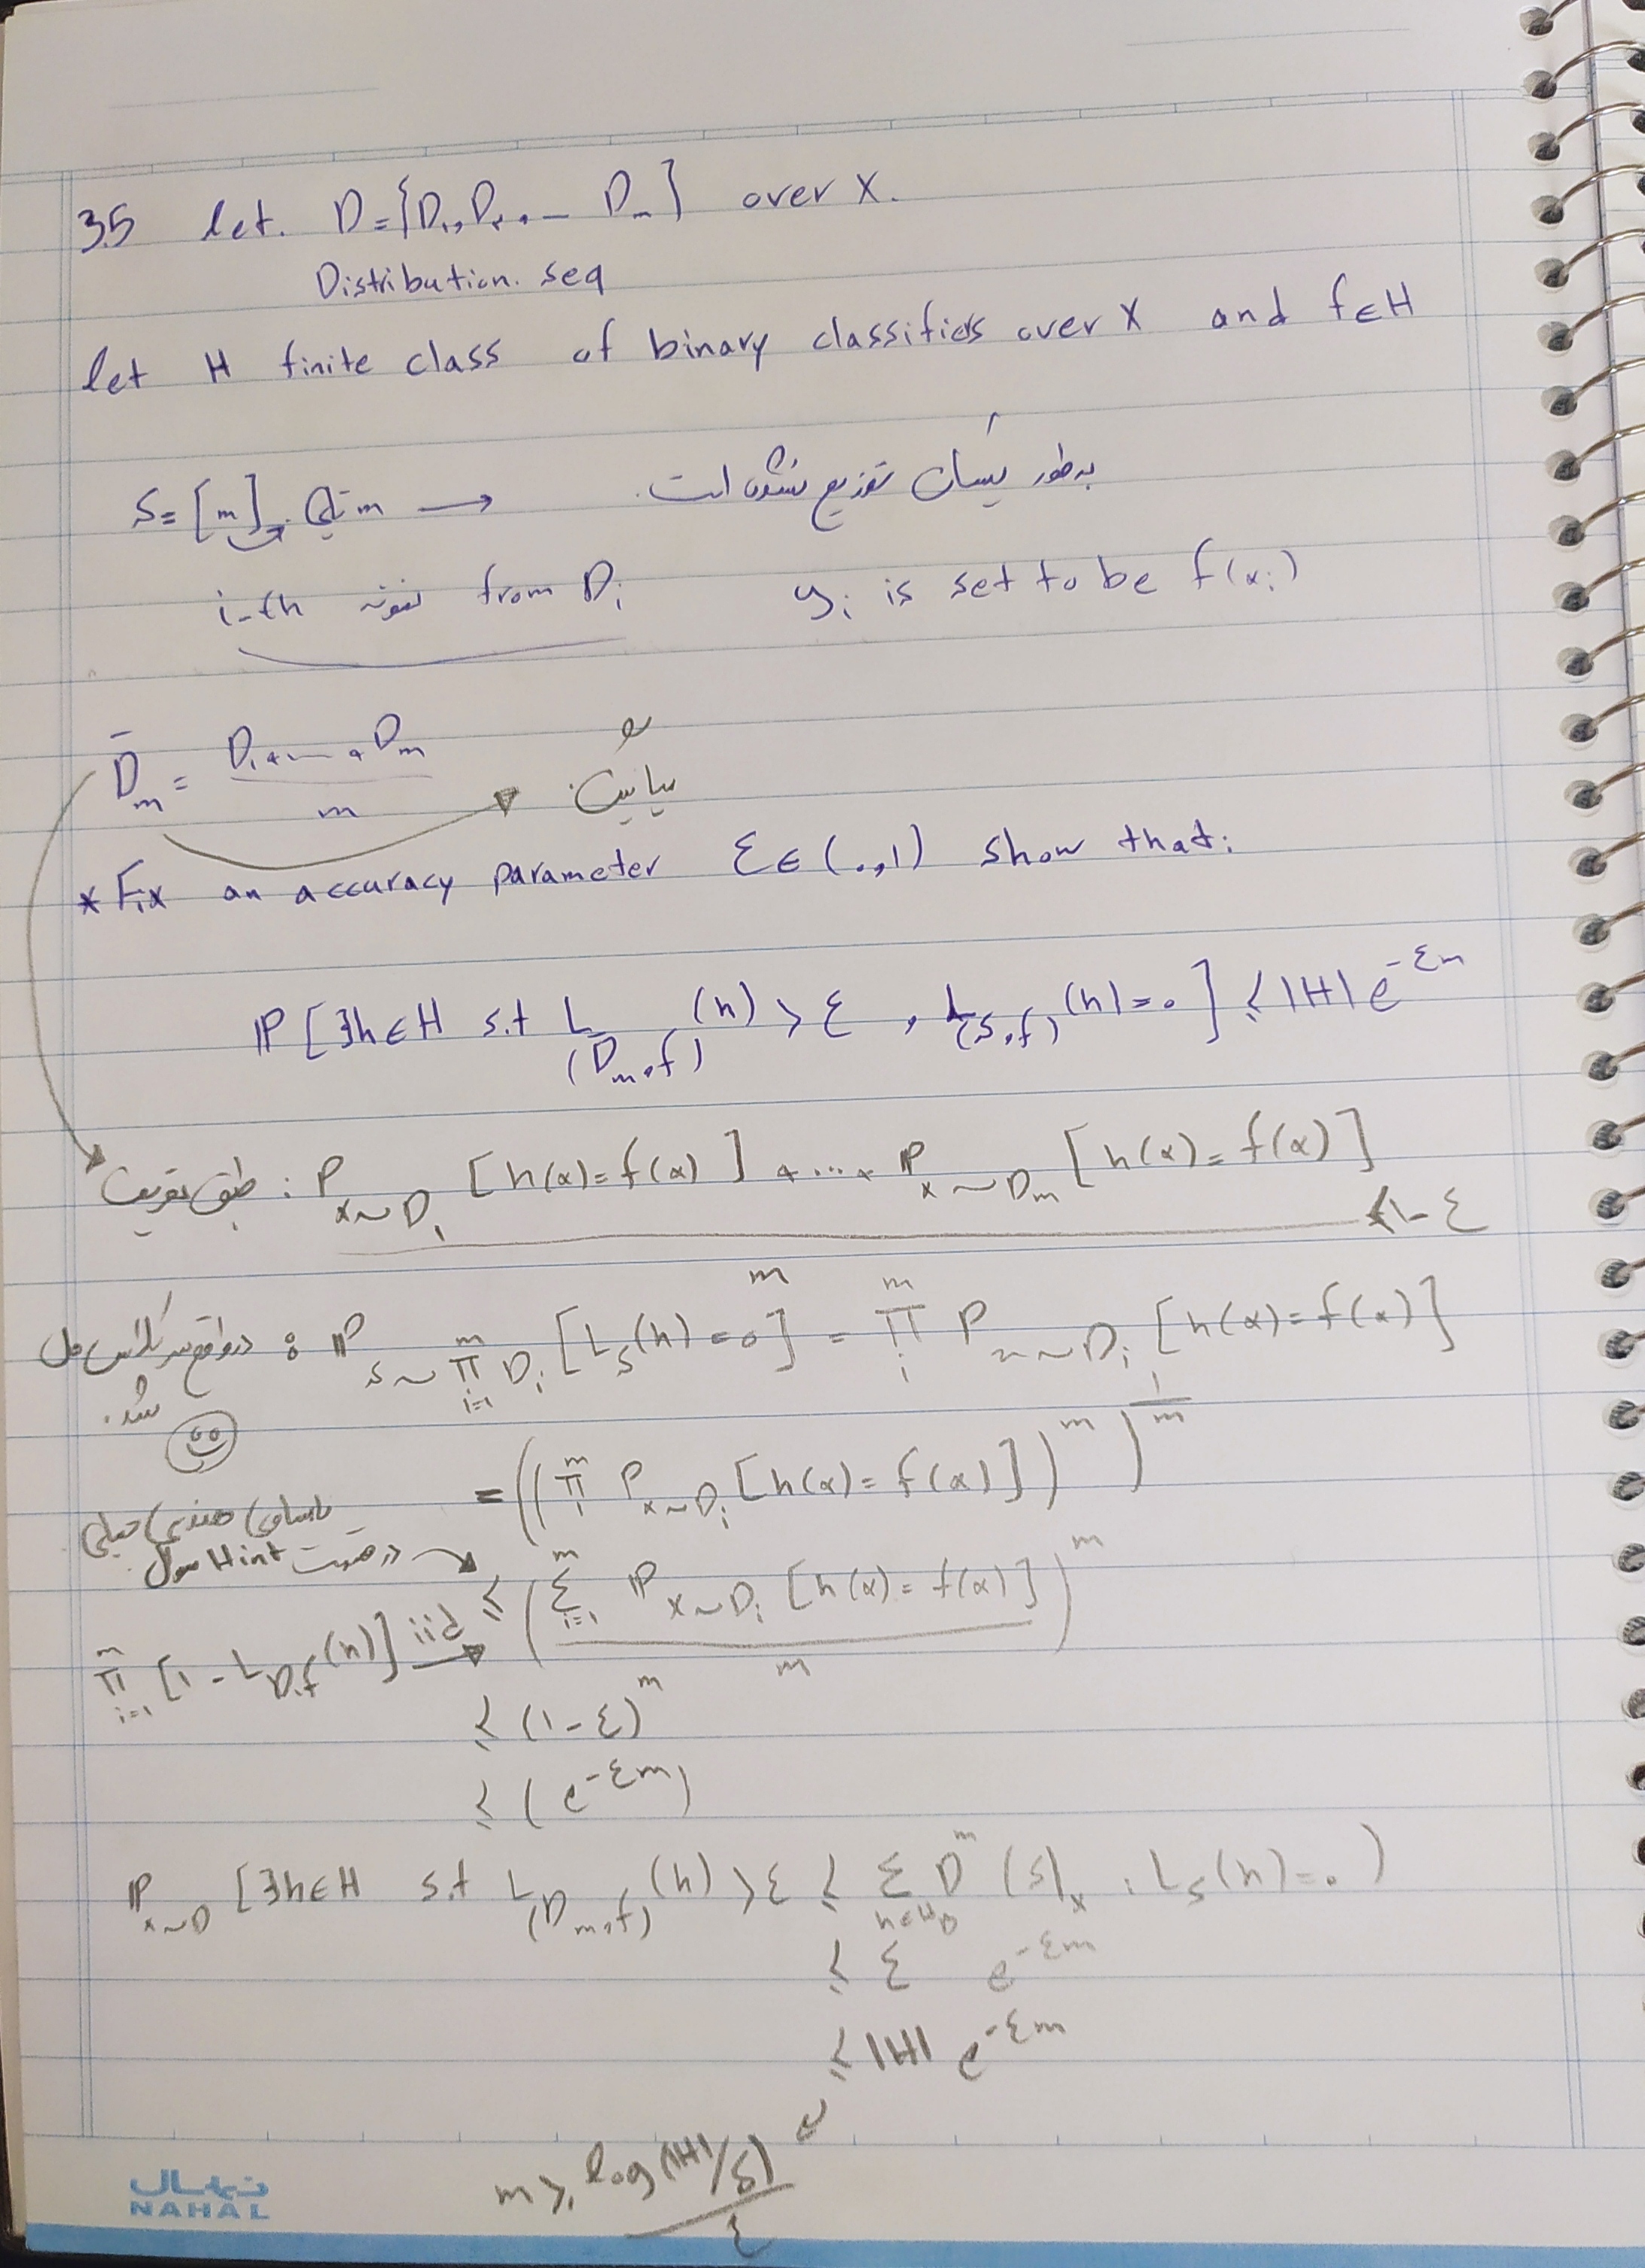 3.5 let. D={D₁, D₂, ... Dₘ} over X.
Distribution. seq
let H finite class of binary classifiers over X and f∈H
S=[m] تایی m → به طور یکسان توزیع نشده است.
i-th نمونه from Dᵢ yᵢ is set to be f(xᵢ)
D̄ₘ = (D₁+...+Dₘ)/m
میانگین
* Fix an accuracy parameter ε∈(0,1) show that:
ℙ[∃h∈H s.t L_(D̄ₘ,f)(h)>ε , L_(S,f)(h)=0] ≤ |H| e^(-εm)
طبق تعریف : (P_(x∼D₁)[h(x)=f(x)] + ... + ℙ_(x∼Dₘ)[h(x)=f(x)])/m < 1-ε
در واقع سر کلاس حل شد. : ℙ_(S∼∏_(i=1)^m Dᵢ)[L_S(h)=0] = ∏_i^m P_(x∼Dᵢ)[h(x)=f(x)]
= ((∏_i^m P_(x∼Dᵢ)[h(x)=f(x)])^m)^(1/m)
نامساوی هندسی حسابی
در قسمت Hint سوال → ≤ ((∑_(i=1)^m ℙ_(x∼Dᵢ)[h(x)=f(x)])/m)^m
∏_(i=1)^m [1-L_(Dᵢ,f)(h)] iid →
≤ (1-ε)^m
≤ (e^(-εm))
ℙ_(x∼D)[∃h∈H s.t L_(D̄ₘ,f)(h)>ε ≤ ∑_(h∈H_B) D^m(S|ₓ : L_S(h)=0)
≤ ∑ e^(-εm)
≤ |H| e^(-εm)
m ≥ log(|H|/δ)/ε
نهال
NAHAL